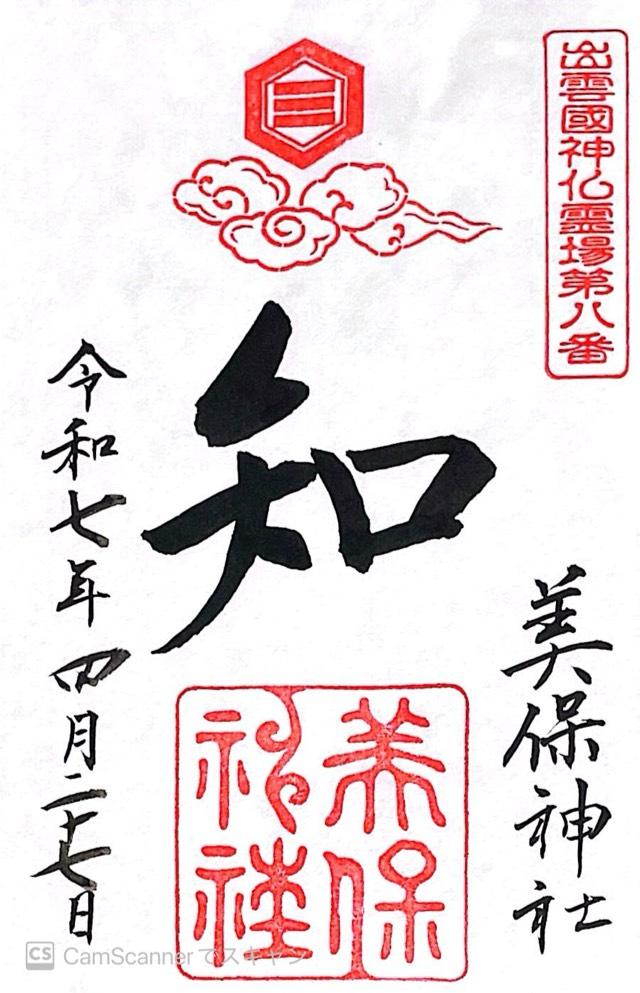 出雲國神仏霊場第八番
三
知
美保神社
美保
神社
令和七年四月二十七日
CS CamScannerでスキャン